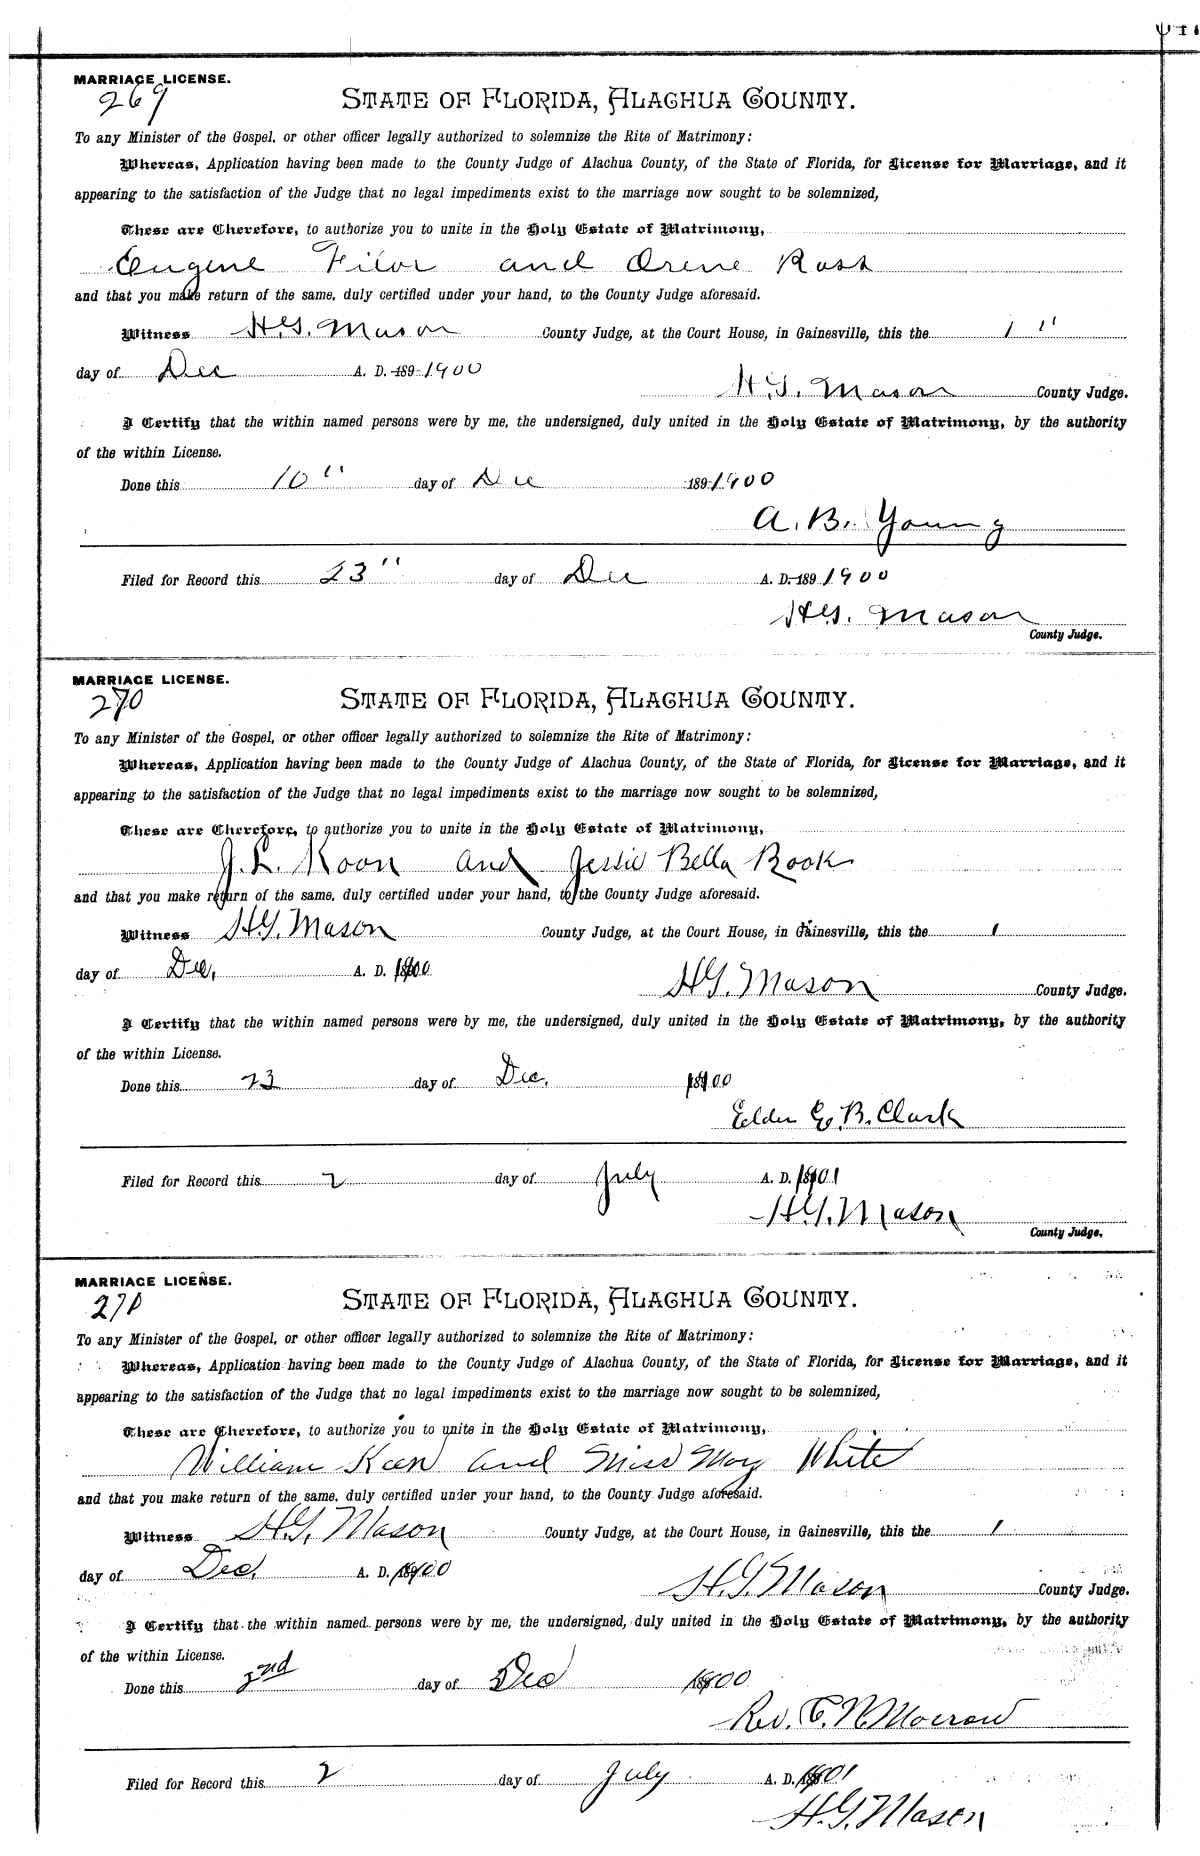 MARRIAGE LICENSE.
269
STATE OF FLORIDA, ALACHUA COUNTY.
To any Minister of the Gospel, or other officer legally authorized to solemnize the Rite of Matrimony:
Whereas, Application having been made to the County Judge of Alachua County, of the State of Florida, for License for Marriage, and it
appearing to the satisfaction of the Judge that no legal impediments exist to the marriage now sought to be solemnized,
These are Therefore, to authorize you to unite in the Holy Estate of Matrimony,
Eugene Filor and Orene Ross
and that you make return of the same, duly certified under your hand, to the County Judge aforesaid.
Witness H.G. Mason County Judge, at the Court House, in Gainesville, this the 1"
day of Dec A. D. 189 1900
H.G. Mason County Judge.
I Certify that the within named persons were by me, the undersigned, duly united in the Holy Estate of Matrimony, by the authority
of the within License.
Done this 10" day of Dec 189 1900
A. B. Young
Filed for Record this 23" day of Dec A. D. 189 1900
H.G. Mason
County Judge.
MARRIAGE LICENSE.
270
STATE OF FLORIDA, ALACHUA COUNTY.
To any Minister of the Gospel, or other officer legally authorized to solemnize the Rite of Matrimony:
Whereas, Application having been made to the County Judge of Alachua County, of the State of Florida, for License for Marriage, and it
appearing to the satisfaction of the Judge that no legal impediments exist to the marriage now sought to be solemnized,
These are Therefore, to authorize you to unite in the Holy Estate of Matrimony,
J. L. Koon and Jessie Bella Rook
and that you make return of the same, duly certified under your hand, to the County Judge aforesaid.
Witness H.G. Mason County Judge, at the Court House, in Gainesville, this the 1
day of Dec. A. D. 1900
H.G. Mason County Judge.
I Certify that the within named persons were by me, the undersigned, duly united in the Holy Estate of Matrimony, by the authority
of the within License.
Done this 23 day of Dec. 1900
Elder G. B. Clark
Filed for Record this 2 day of July A. D. 1901
H.G. Mason
County Judge.
MARRIAGE LICENSE.
271
STATE OF FLORIDA, ALACHUA COUNTY.
To any Minister of the Gospel, or other officer legally authorized to solemnize the Rite of Matrimony:
Whereas, Application having been made to the County Judge of Alachua County, of the State of Florida, for License for Marriage, and it
appearing to the satisfaction of the Judge that no legal impediments exist to the marriage now sought to be solemnized,
These are Therefore, to authorize you to unite in the Holy Estate of Matrimony,
William Keen and Miss May White
and that you make return of the same, duly certified under your hand, to the County Judge aforesaid.
Witness H.G. Mason County Judge, at the Court House, in Gainesville, this the 1
day of Dec. A. D. 1900
H.G. Mason County Judge.
I Certify that the within named persons were by me, the undersigned, duly united in the Holy Estate of Matrimony, by the authority
of the within License.
Done this 2nd day of Dec 1900
Rev. C. N. Morrow
Filed for Record this 2 day of July A. D. 1901
H.G. Mason